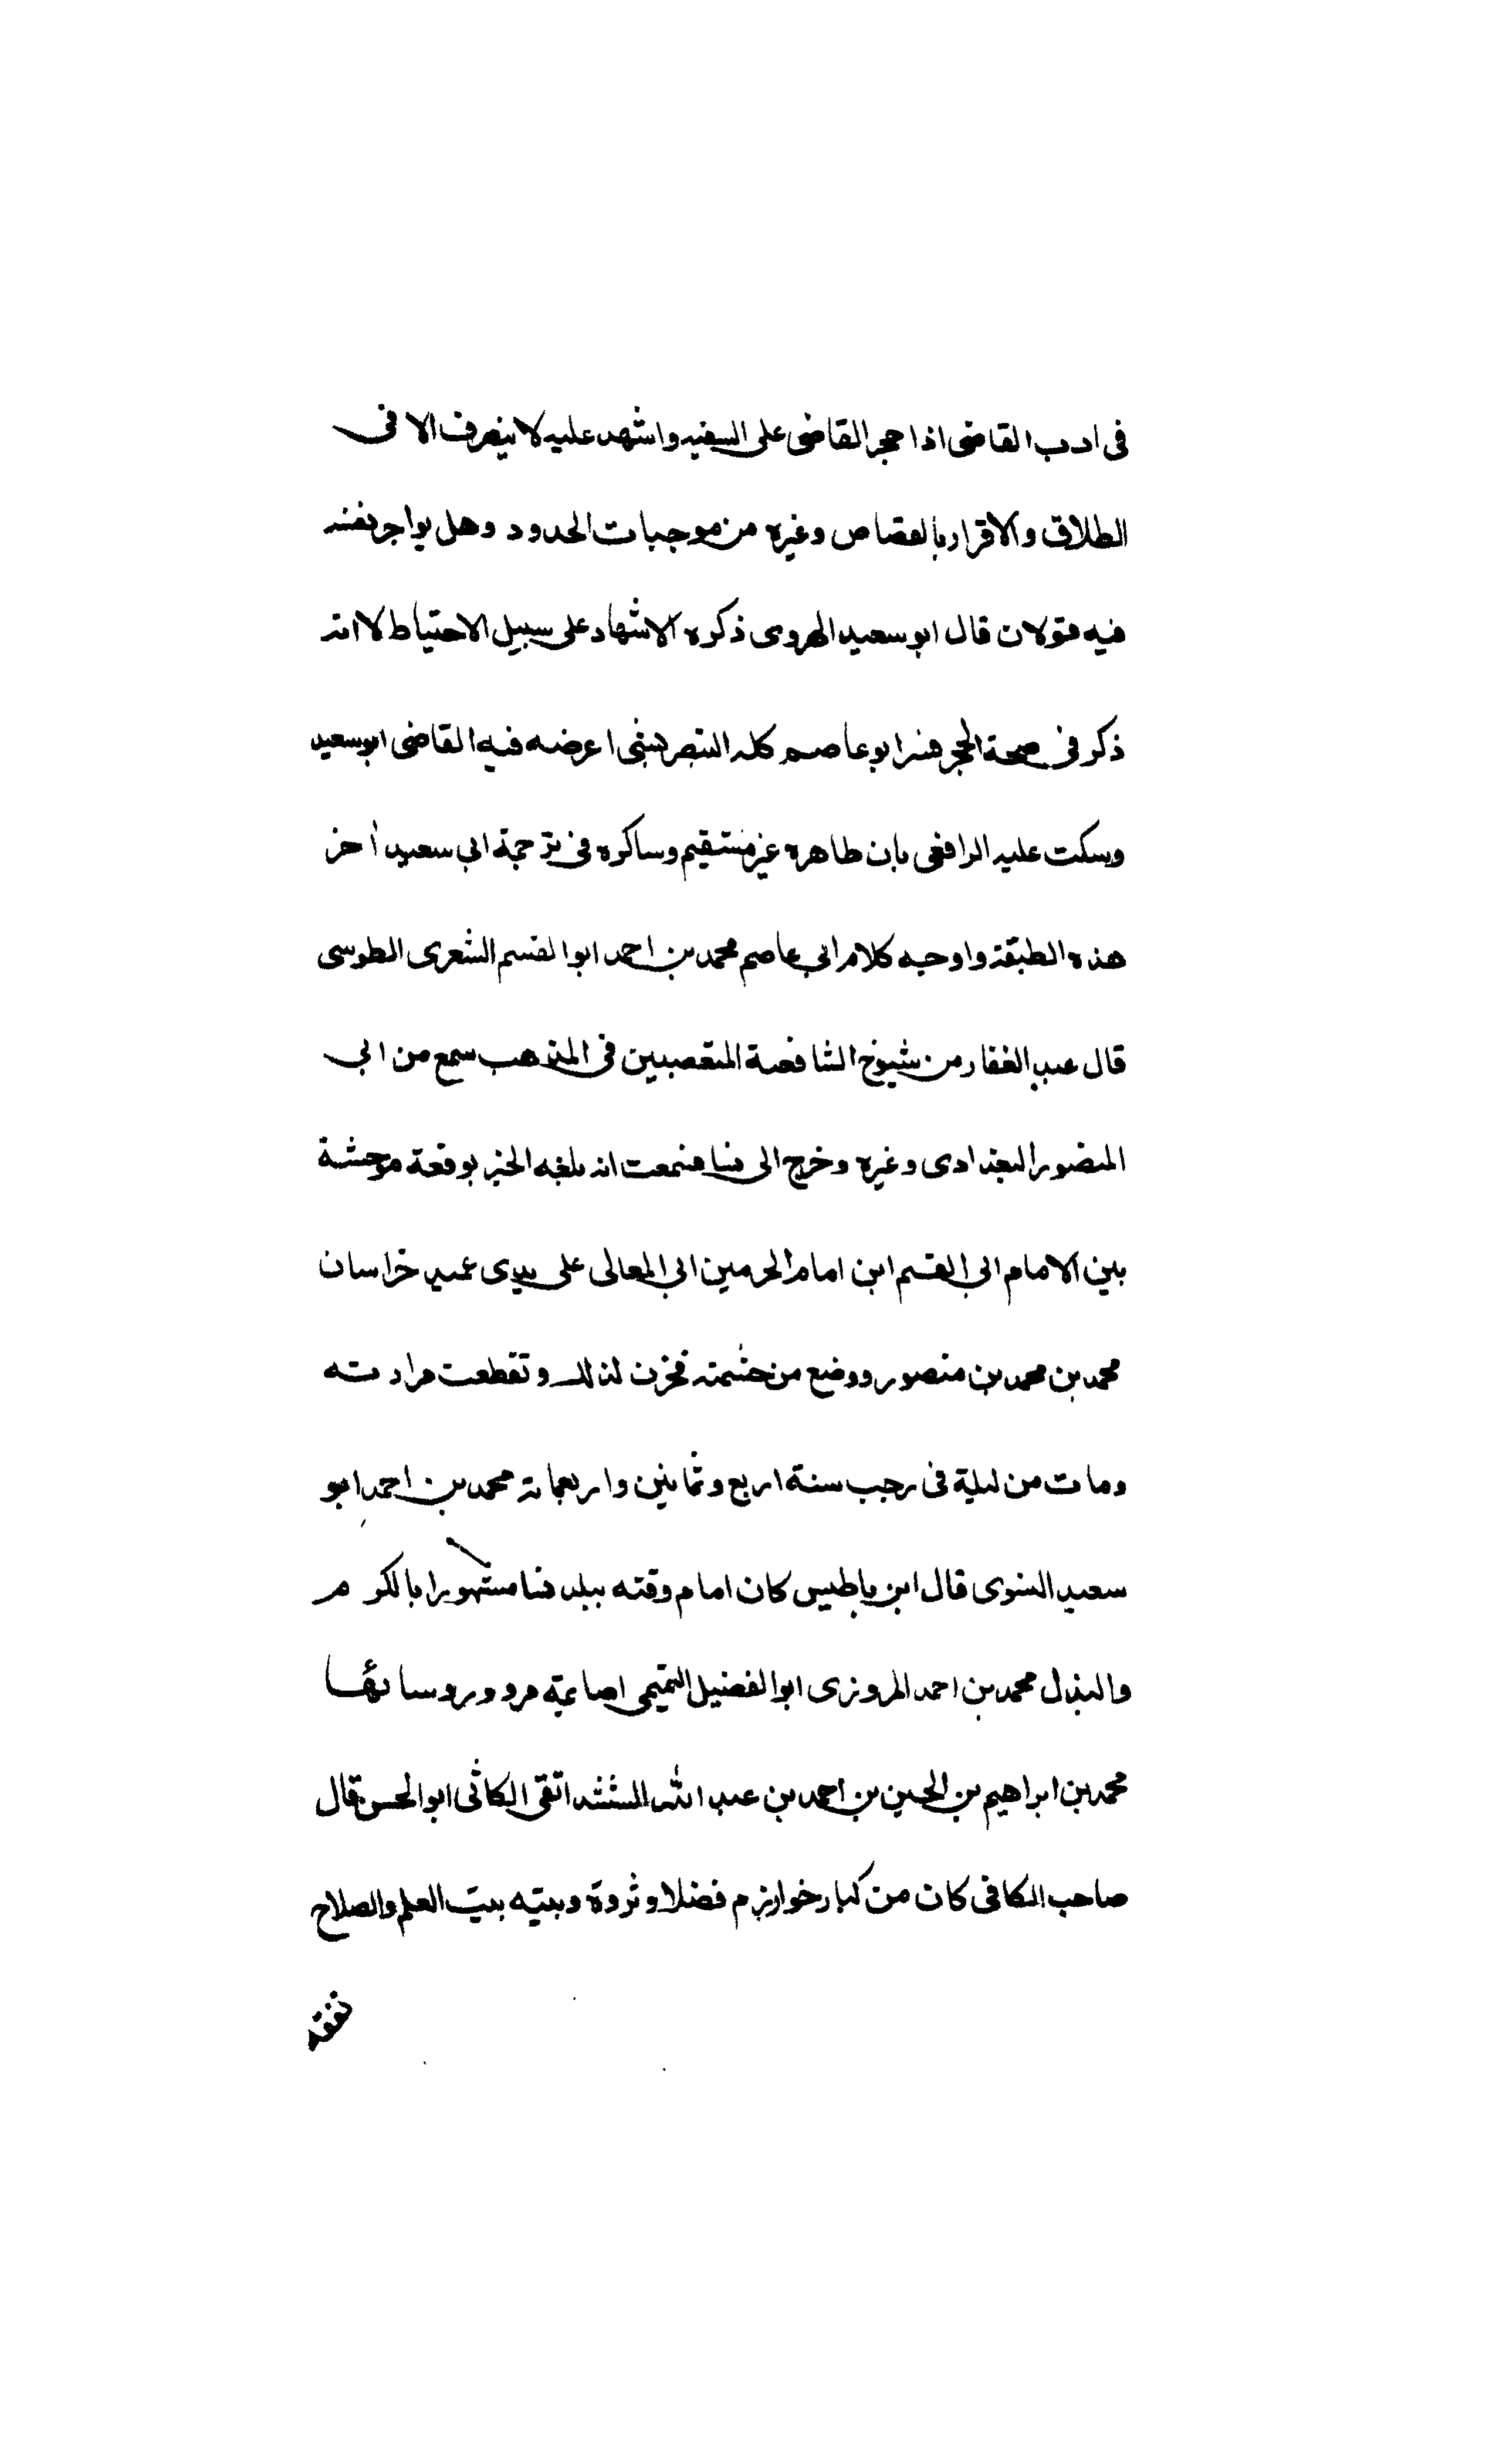 فى ادب القاضى اذا حجر القاضى على السفيه واشهد عليه لا ينصرف الا فى
الطلاق والاقرار بالقصاص وغيره من موجبات الحدود وهل يواجر نفسه
فيه قولان قال ابو سعيد الهروى ذكره الاشهاد على سبيل الاحتياط لا انه
ذكر فى صحة الحجر ابو عاصم كله اعرضه فيه القاضى ابو سعيد
وسكت عليه الرافعى بان طاهره غير مستقيم وساكره فى ترجمة ابى سعيد أخر
هذه الطبقة واوجه كلام ابى عاصم محمد بن احمد ابو القسم الشعرى الطوسى
قال عبد الغفار من شيوخ الشافعية المتعصبين فى المذهب سمع من ابى
المنصور البغدادى وغيره وخرج الى نسا فسمعت انه بلغه الخبر بوقعة موحشة
بين الامام ابى القسم ابن امام الحرمين ابى المعالى على يدى عميد خراسان
محمد بن محمد بن منصور ووضع من حشمته فحزن لذلك وتقطعت مرارته
ومات من ليلة فى رجب سنة اربع وثمانين واربعماية محمد بن احمد ابو
سعيد النسوى قال ابن باطيس كان امام وقته ببلد نسا مشهورا بالكرم
والبذل محمد بن احمد المروزى ابو الفضيل التميمى مرو وروسائها
محمد بن ابراهيم بن الحسين بن احمد بن عبد الله الكاثى ابو الحسن قال
صاحب الكافى كان من كبار خوارزم فضلا وثروة وبيته بيت العلم والصلاح
تفقه